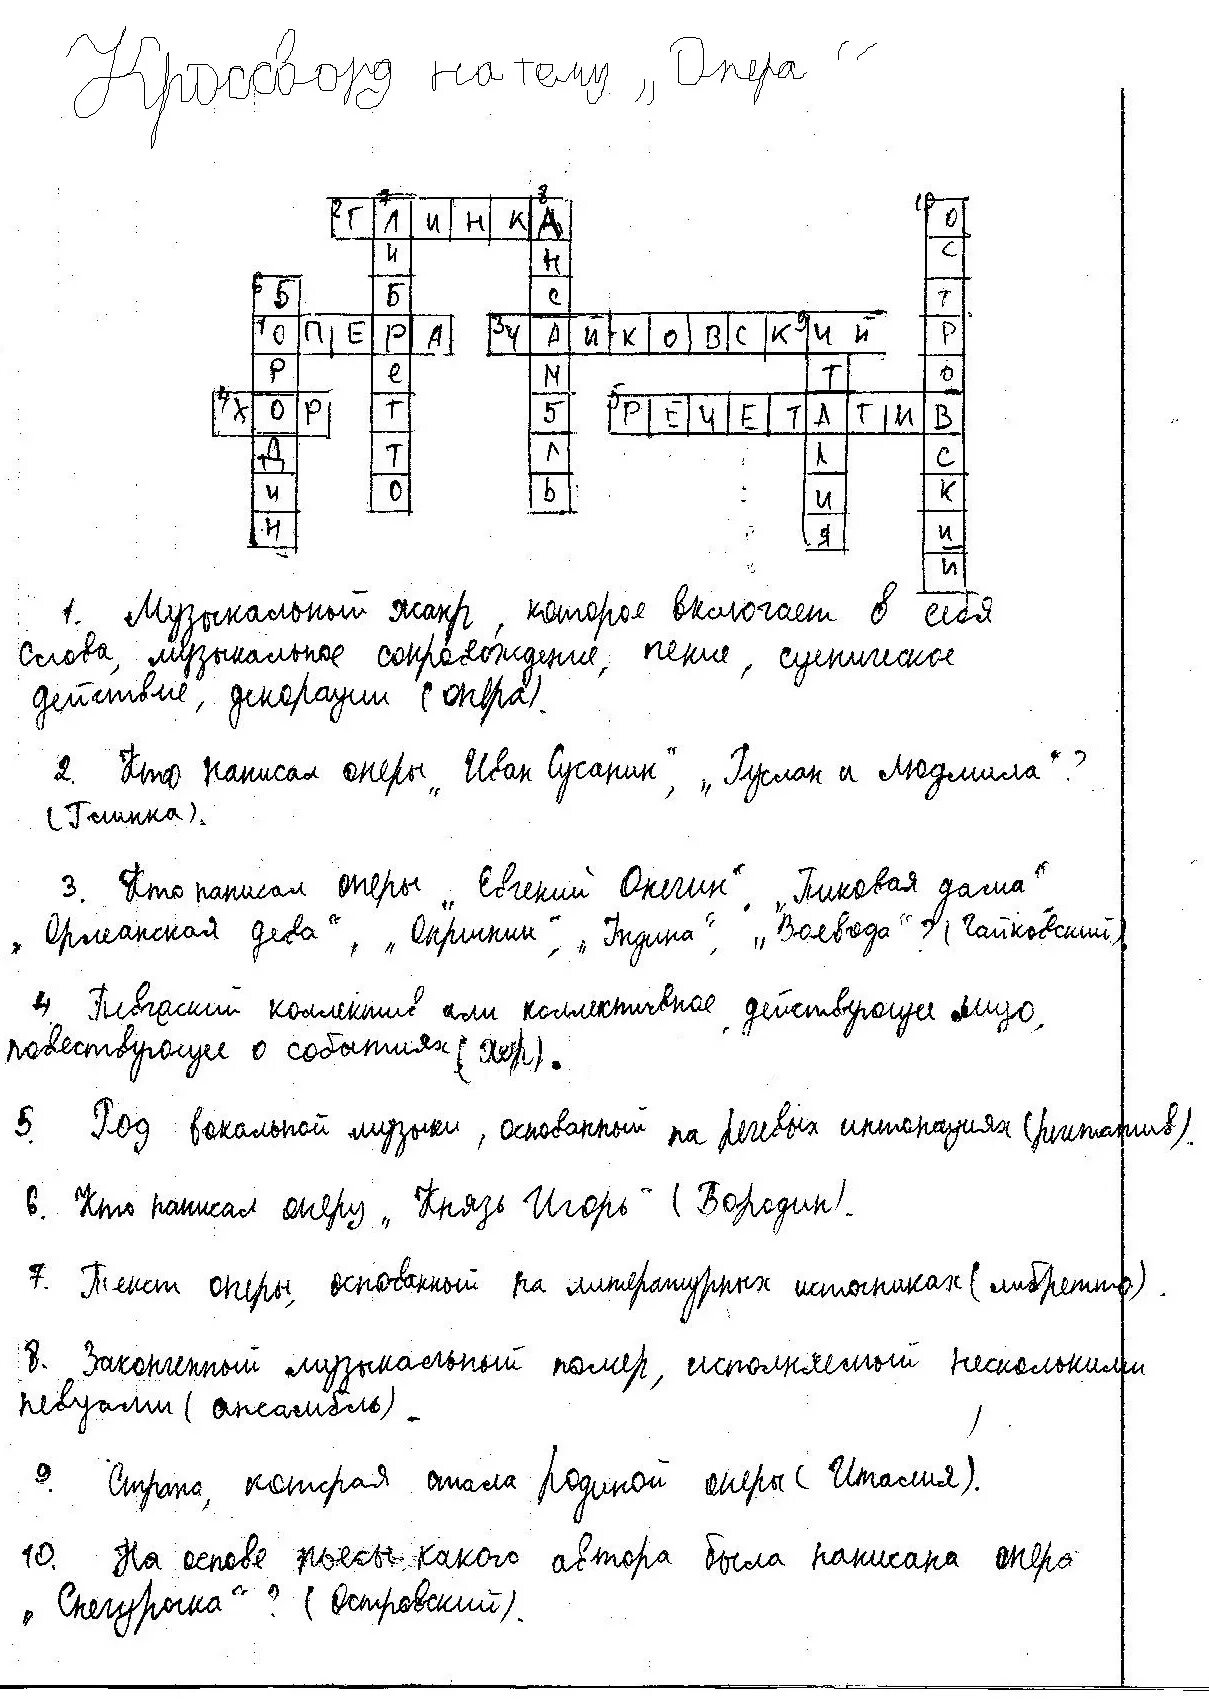 Кроссворд на тему „Опера“
2 Г 7 Л И Н К 8 А 10 О
И Н С
6 Б Б С Т
1 О П Е Р А 3 Ч А Й К О В С К 9 И Й Р
Р Е М Т О
4 Х О Р Т Б 5 Р Е Ч Е Т А Т И В
Д Т Л Л С
И О Ь И К
Н Я И
Й
1. Музыкальный жанр, которое включает в себя
слова, музыкальное сопровождение, пение, сценическое
действие, декорации (опера).
2. Кто написал оперы „Иван Сусанин“, „Руслан и Людмила“?
(Глинка).
3. Кто написал оперы „Евгений Онегин“, „Пиковая дама“,
„Орлеанская дева“, „Опричник“, „Ундина“, „Воевода“? (Чайковский)
4. Певческий коллектив или коллективное действующее лицо,
повествующее о событиях (хор).
5. Род вокальной музыки, основанный на речевых интонациях (речитатив).
6. Кто написал оперу „Князь Игорь“ (Бородин).
7. Текст оперы, основанный на литературных источниках (либретто).
8. Законченный музыкальный номер, исполняемый несколькими
певцами (ансамбль).
9. Страна, которая стала родиной оперы (Италия).
10. На основе пьесы какого автора была написана опера
„Снегурочка“? (Островский).